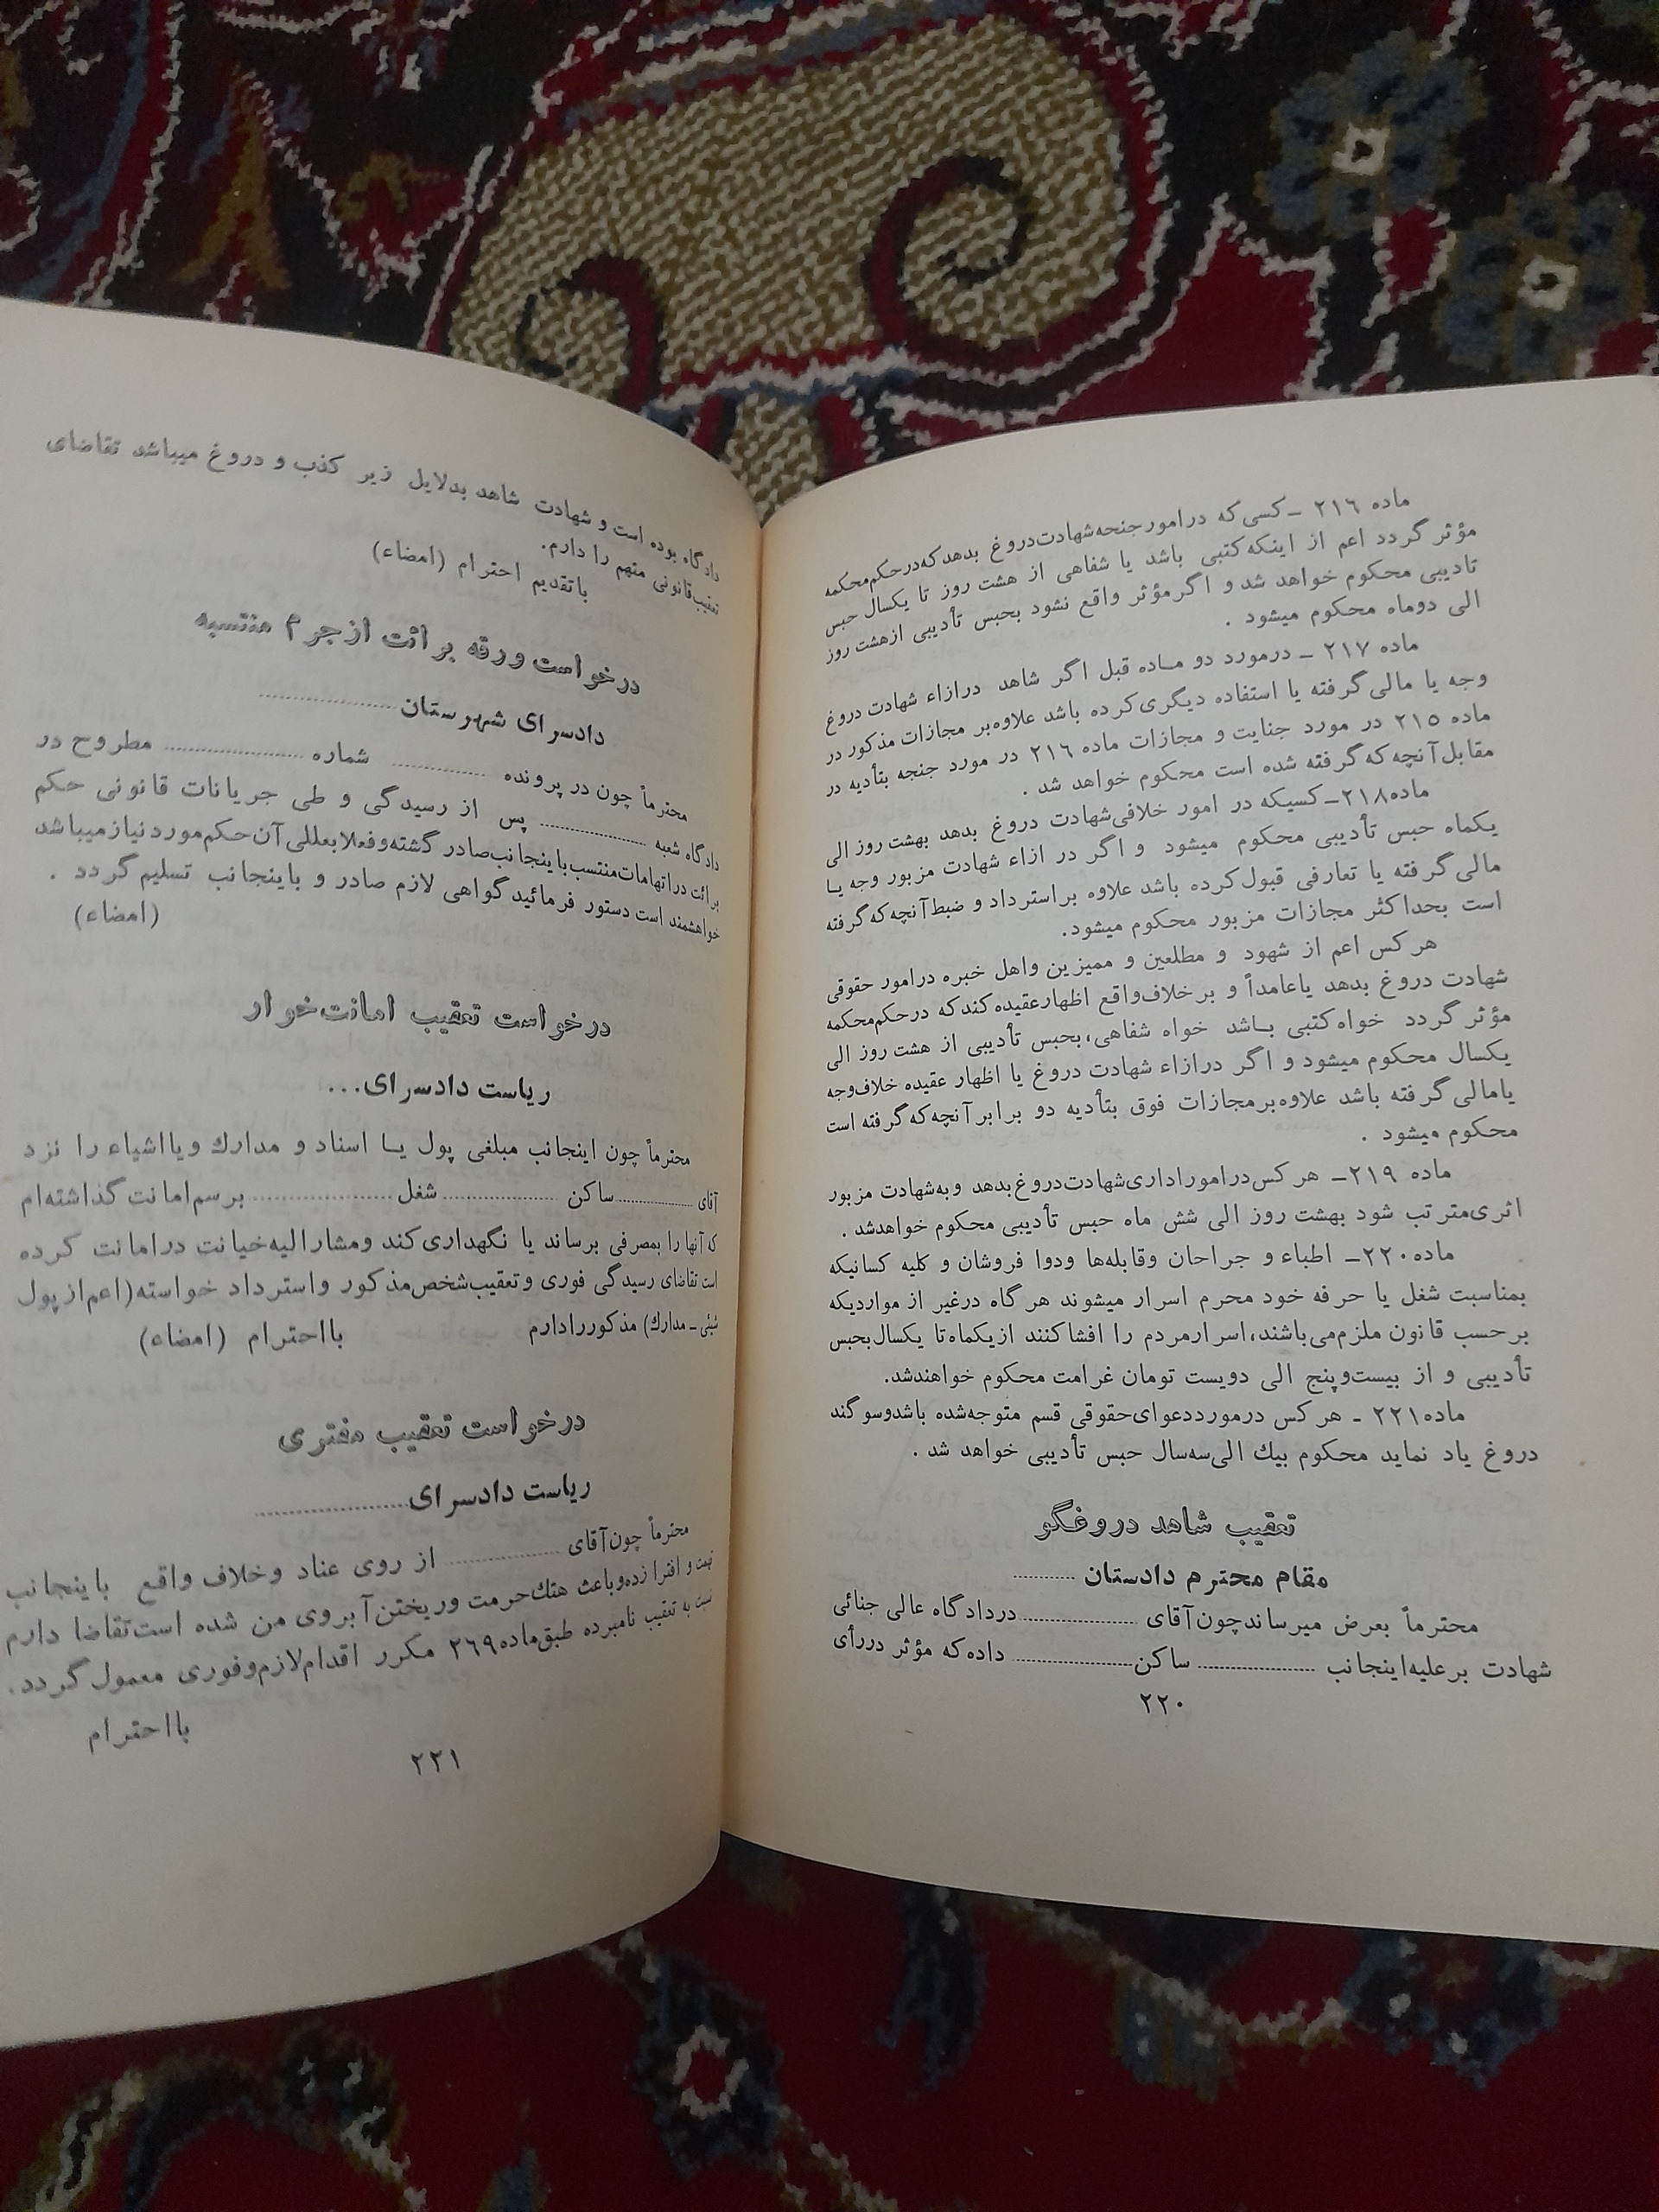 ماده ۲۱۶ ـ کسی که در امور جنحه شهادت دروغ بدهد که در حکم محکمه
مؤثر گردد اعم از اینکه کتبی باشد یا شفاهی از هشت روز تا یکسال حبس
تادیبی محکوم خواهد شد و اگر مؤثر واقع نشود بحبس تأدیبی از هشت روز
الی دوماه محکوم میشود .
ماده ۲۱۷ ـ درمورد دو ماده قبل اگر شاهد درازاء شهادت دروغ
وجه یا مالی گرفته یا استفاده دیگری کرده باشد علاوه بر مجازات مذکور در
ماده ۲۱۵ در مورد جنایت و مجازات ماده ۲۱۶ در مورد جنجه بتأدیه در
مقابل آنچه که گرفته شده است محکوم خواهد شد .
ماده ۲۱۸ـ کسیکه در امور خلافی شهادت دروغ بدهد بهشت روز الی
یکماه حبس تأدیبی محکوم میشود و اگر در ازاء شهادت مزبور وجه یا
مالی گرفته یا تعارفی قبول کرده باشد علاوه براسترداد و ضبط آنچه که گرفته
است بحداکثر مجازات مزبور محکوم میشود.
هر کس اعم از شهود و مطلعین و ممیزین واهل خبره درامور حقوقی
شهادت دروغ بدهد یاعامداً و برخلاف واقع اظهار عقیده کند که در حکم محکمه
مؤثر گردد خواه کتبی باشد خواه شفاهی، بحبس تأدیبی از هشت روز الی
یکسال محکوم میشود و اگر درازاء شهادت دروغ یا اظهار عقیده خلاف وجه
یامالی گرفته باشد علاوه برمجازات فوق بتأدیه دو برابر آنچه که گرفته است
محکوم میشود .
ماده ۲۱۹ـ هر کس درامور اداری شهادت دروغ بدهد و به شهادت مزبور
اثری مترتب شود بهشت روز الی شش ماه حبس تأدیبی محکوم خواهدشد .
ماده ۲۲۰ـ اطباء و جراحان وقابله‌ها ودوا فروشان و کلیه کسانیکه
بمناسبت شغل یا حرفه خود محرم اسرار میشوند هر گاه درغیر از مواردیکه
برحسب قانون ملزم می‌باشند، اسرارمردم را افشاکنند ازیکماه تا یکسال بحبس
تأدیبی و از بیست‌وپنج الی دویست تومان غرامت محکوم خواهندشد.
ماده ۲۲۱ - هر کس درمورددعوای حقوقی قسم متوجه شده باشدوسو گند
دروغ یاد نماید محکوم بیك الی سه سال حبس تأدیبی خواهد شد .
تعقیب شاهد دروغگو
مقام محترم دادستان ............
محترماً بعرض میرساندچون آقای ............ دردادگاه عالی جنائی
شهادت برعلیه اینجانب ............ ساکن ............ داده که مؤثر دررأی
۲۲۰
دادگاه بوده است و شهادت شاهد بدلایل زیر کذب و دروغ میباشد تقاضای
تعقیب قانونی متهم را دارم.
باتقدیم احترام (امضاء)
درخواست ورقه برائت ازجرم منتسبه
دادسرای شهرستان ............
محترماً چون در پرونده ............ شماره ............ مطروح در
دادگاه شعبه ............ پس از رسیدگی و طی جریانات قانونی حکم
برائت دراتهامات منتسب باینجانب صادر گشته وفعلا بعللی آن حکم مورد نیازمیباشد
خواهشمند است دستور فرمائید گواهی لازم صادر و باینجانب تسلیم گردد .
(امضاء)
درخواست تعقیب امانت‌خوار
ریاست دادسرای...
محترماً چون اینجانب مبلغی پول یا اسناد و مدارك ویااشیاء را نزد
آقای ............ ساکن ............ شغل ............ برسم امانت گذاشته‌ام
که آنها را بمصرفی برساند یا نگهداری کند ومشارالیه خیانت درامانت کرده
است تقاضای رسیدگی فوری و تعقیب شخص مذکور واسترداد خواسته (اعم از پول
شیئی ـ مدارك) مذکوررادارم بااحترام (امضاء)
درخواست تعقیب مفتری
ریاست دادسرای ............
محترماً چون آقای ............ از روی عناد وخلاف واقع باینجانب
تهمت و افترا زده وباعث هتك حرمت وریختن آبروی من شده است تقاضا دارم
نسبت به تعقیب نامبرده طبق ماده ۲۶۹ مکرر اقدام لازم وفوری معمول گردد.
بااحترام
۲۲۱